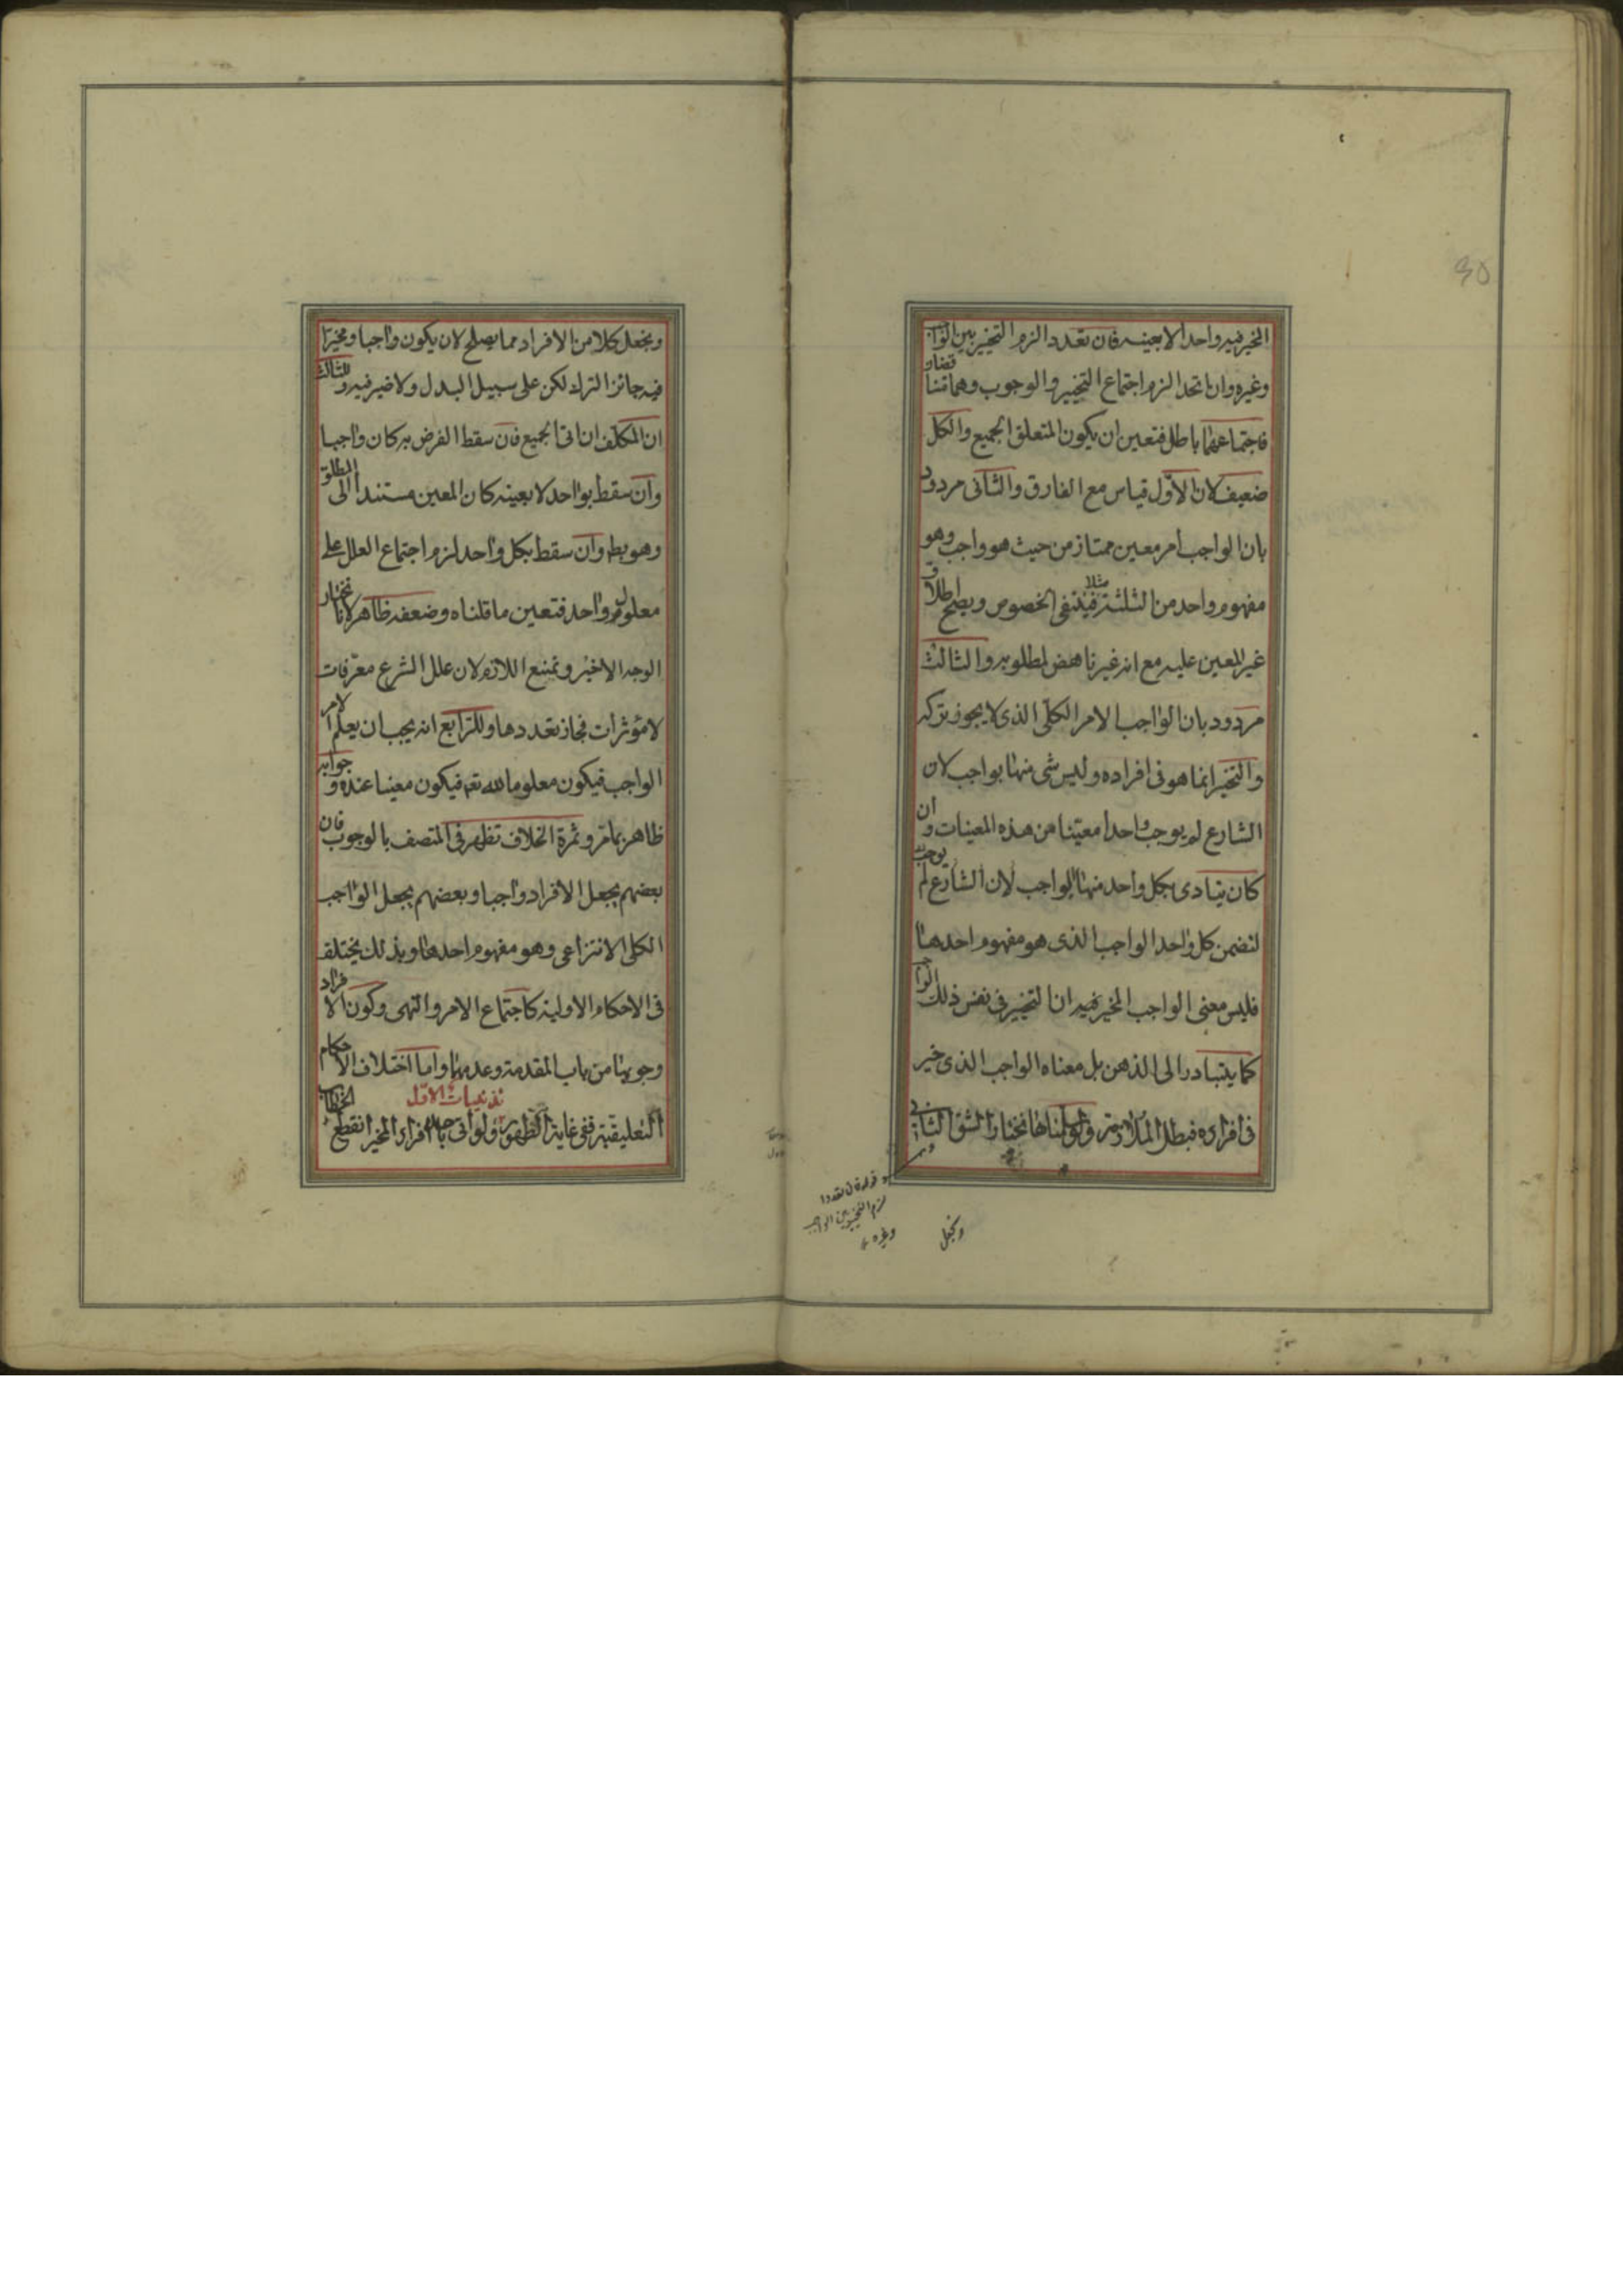 المخير فيه واحدا لا بعينه فان تعددا لزم التخيير بين الواجب
وغيره وان اتحدا لزم اجتماع التخيير والوجوب وهما متناقضان
فاجتماعهما باطل فتعين ان يكون المتعلق الجميع والكل
ضعيف لان الاول قياس مع الفارق والثانى مردود
بان الواجب امر معين ممتاز من حيث هو واجب وهو
مفهوم واحد من الثلثة مثلا فينتفى الخصوص ويصلح اطلاق
غير المعين عليه مع انه غير ناهض لمطلوبه والثالث
مردود بان الواجب الامر الكلى الذى لا يجوز تركه
والتخيير انما هو فى افراده وليس شى منها بواجب لان
الشارع لم يوجب واحدا معينا من هذه المعينات وان
كان يتادى بكل واحد منها الواجب لان الشارع لم يوجب
لتضمن كل واحد الواجب الذى هو مفهوم احدها
فليس معنى الواجب المخير فيه ان التخيير فى نفس ذلك الواجب
كما يتبادر الى الذهن بل معناه الواجب الذى خير
فى افراده فبطل الملازمة ولو سلمناها نختار الشق الثانى
قوله فان تعددا
لزم التخيير بين الواجب
وغيره
ونجعل
ونجعل كلا من الافراد مما يصلح لان يكون واجبا ومخيرا
فيه جائز الترك لكن على سبيل البدل ولا ضير فيه وللثالث
ان المكلف ان اتى الجميع فان سقط الفرض به كان واجبا
وان سقط بواحد لا بعينه كان المعين مستندا الى المطلق
وهو بط وان سقط بكل واحد لزم اجتماع العلل على
معلول واحد فتعين ما قلناه وضعفه ظاهر لانا نختار
الوجه الاخير ونمنع اللازم لان علل الشرع معرفات
لا مؤثرات فجاز تعددها وللرابع انه يجب ان يعلم الامر
الواجب فيكون معلوما لله تعه فيكون معينا عنده وجوابه
ظاهر بما مر وثمرة الخلاف تظهر فى المتصف بالوجوب فان
بعضهم يجعل الافراد واجبا وبعضهم يجعل الواجب
الكلى الانتزاعى وهو مفهوم احدها وبذلك يختلف
فى الاحكام الاولية كاجتماع الامر والنهى وكون الافراد
وجوبها من باب المقدمة وعدمها واما اختلاف الاحكام
تذنيبات الاول
التعليقية ففى غاية الظهور ولو اتى باحد افراد المخير انقطع الخطاب